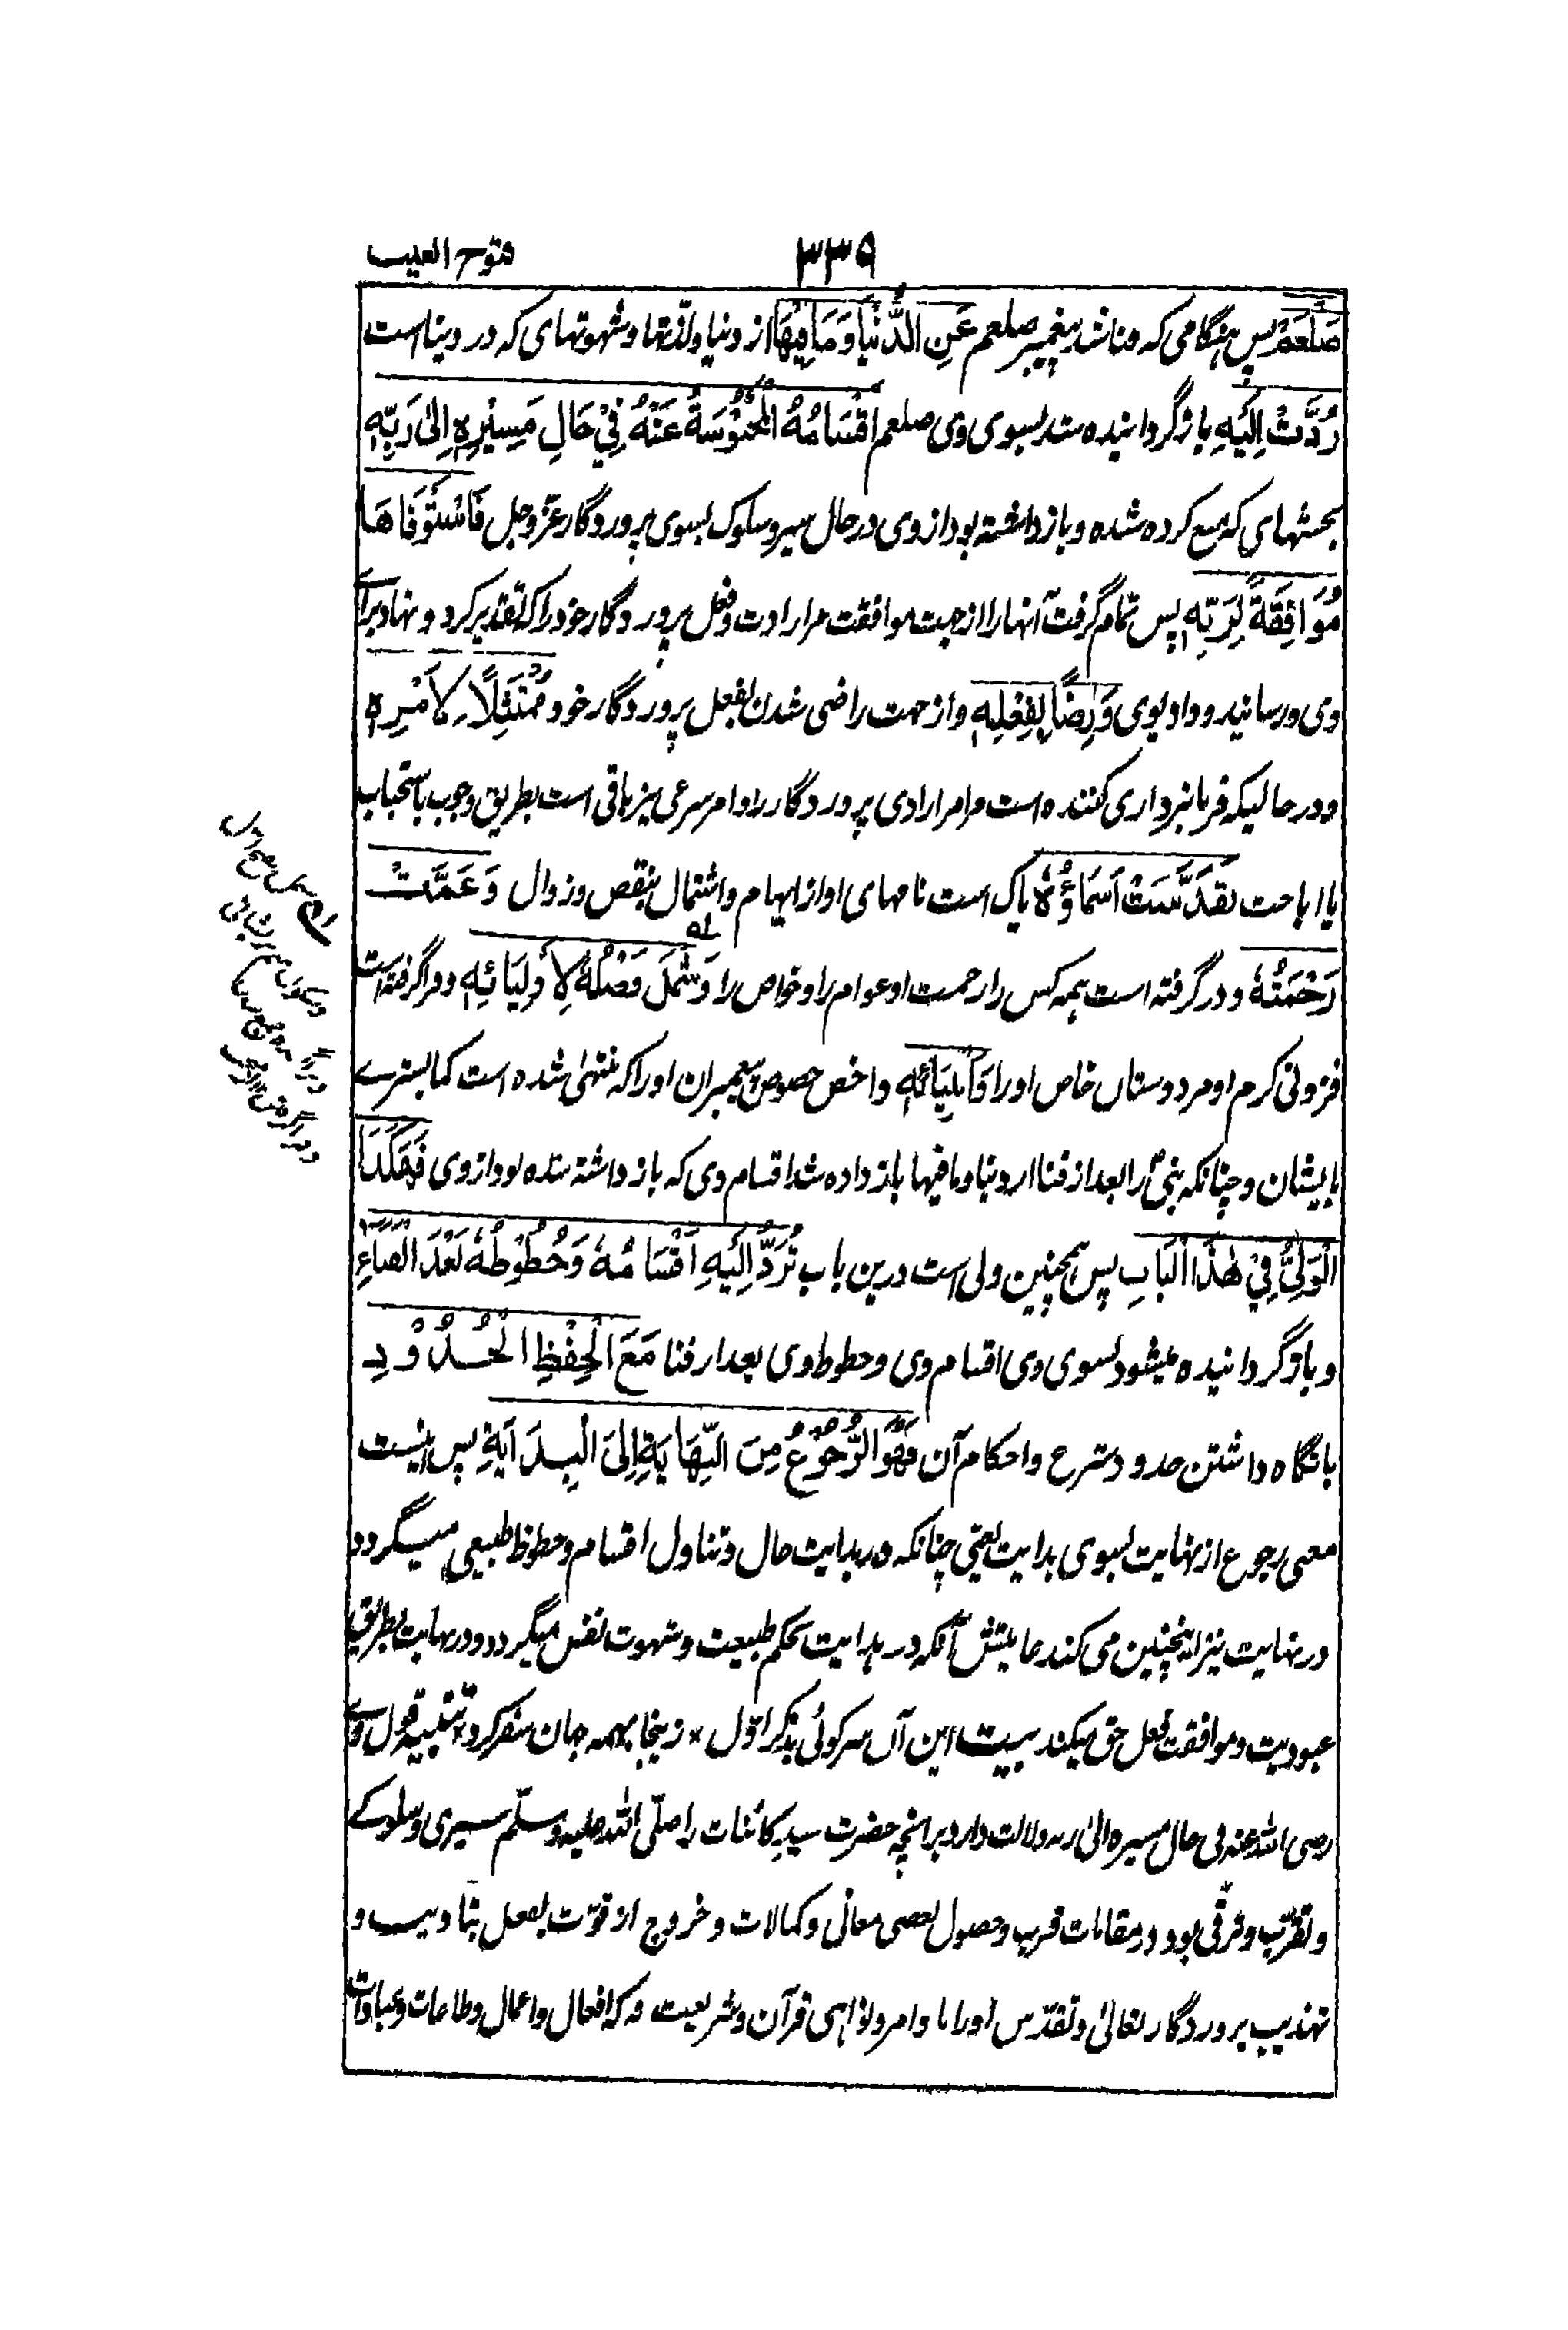 فتوح الغیب
۳۳۹
صَلْعَمْ پس ہنگامی کہ فنا شد پیغمبر صلعم عَنِ الدُّنْیَا وَمَا فِیْهَا از دنیا ولذّتها وشہوتہای کہ در دنیا است
رُدَّتْ اِلَیْهِ بازگردانیدہ شد بسوی وی صلعم اَقْسَامُهُ الْمَحْبُوْسَةُ عَنْهُ فِیْ حَالِ مَسِیْرِهٖ اِلٰی رَبِّهٖ
بخشہای کہ منع کردہ شدہ و بازداشتہ بود از وی در حال سیر وسلوک بسوی پروردگار عزّوجل فَاسْتَوْفَاهَا
مُوَافِقَةً لِرَبِّهٖ پس تمام گرفت آنہا را از جہت موافقت مر ارادت وفعل پروردگار خود را کہ تقدیر کرد و نهاد برای
وی ورسانید وداد بوی وَرِضًا بِفِعْلِهٖ واز جهت راضی شدن بفعل پروردگار خود مُمْتَثِلًا لِاَمْرِهٖ
ودر حالیکہ فرمانبرداری کنندہ است مر امر ارادی پروردگار را وامر شرعی نیز باقی است بطریق وجوب یا استحباب
یا اباحت تَقَدَّسَتْ اَسْمَاؤُهٗ پاک است نامهای او از ایہام واشتمال بنقص وزوال وَعَمَّتْ
رَحْمَتُهٗ و درگرفتہ است ہمہ کس را رحمت او عوام را وخواص را وَشَمَلَ فَضْلُهٗ لِاَوْلِیَائِهٖ وفراگرفتہ است
فزونی کرم او مر دوستان خاص او را وَاَنْبِیَائِهٖ واخص خصوص پیغمبران او را کہ منتهیٰ شدہ است کمال بشری
بایشان وچنانکہ نبیؐ را بعد از فنا از دنیا وما فیہا باز دادہ شد اقسام وی کہ باز داشتہ شدہ بود از وی فَهٰكَذَا
الْوَلِیُّ فِیْ هٰذَا الْبَابِ پس ہمچنین ولی است درین باب تُرَدُّ اِلَیْهِ اَقْسَامُهٗ وَحُظُوْظُهٗ بَعْدَ الْفَنَاءِ
و بازگردانیدہ میشود بسوی وی اقسام وی وحظوظ وی بعد از فنا مَعَ الْحِفْظِ الْحُدُوْدِ
با نگاہ داشتن حدود شرع واحکام آن فَهُوَ الرُّجُوْعُ مِنَ النِّهَایَةِ اِلَی الْبِدَایَةِ پس اینست
معنی رجوع از نہایت بسوی بدایت یعنی چنانکہ در بدایت حال وتناول اقسام وحظوظ طبیعی میگردد
در نہایت نیز اینچنین می کند غایتش آنکہ در بدایت بحکم طبیعت وشہوت نفس میگردد ودر نہایت بطریق
عبودیت وموافقت فعل حق میکند بیت این آں سر کوئی بذکر اوّل * زینجا بہمہ جہان سفر کردم تنبیہ قول وے
رضی اللہ عنہ فی حال مسیرہ الیٰ ربہ دلالت دارد برآنچہ حضرت سید کائنات را صلّی اللہ علیہ وسلّم سیری وسلوکے
وتقرّب وترقی بود در مقامات قرب وحصول بعضی معانی وکمالات وخروج از قوّت بفعل بتادیب و
تہذیب پروردگار تعالیٰ وتقدّس او را با وامر ونواہی قرآن وشریعت کہ افعال واعمال وطاعات وعبادات